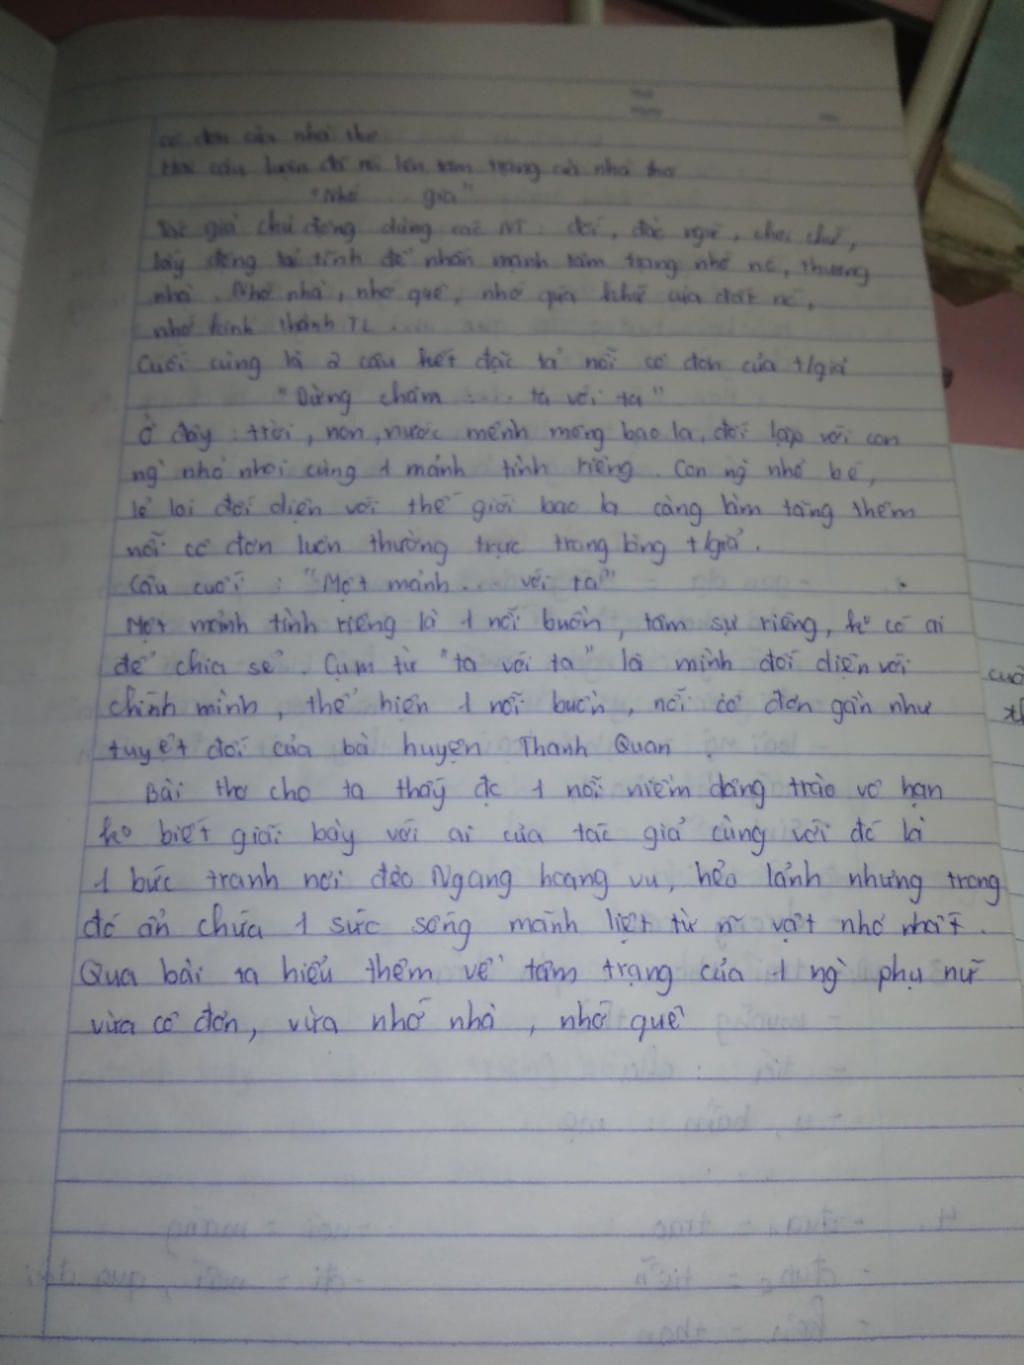 cô đơn của nhà thơ
Hai câu luận đã nói lên tâm trạng của nhà thơ
"Nhớ ... gia"
Tác giả chủ động dùng các NT : đối, đảo ngữ, chơi chữ,
lấy động tả tĩnh để nhấn mạnh tâm trạng nhớ nc, thương
nhà. Nhớ nhà, nhớ quê, nhớ quá khứ của đất nc,
nhớ kinh thành TL ...
Cuối cùng là 2 câu kết đặc tả nỗi cô đơn của t/giả
"Dừng chấm .... ta với ta"
Ở đây : trời, non, nước mênh mông bao la, đối lập với con
ng` nhỏ nhoi cùng 1 mảnh tình riêng. Con ng` nhỏ bé,
lẻ loi đối diện với thế giới bao la càng làm tăng thêm
nỗi cô đơn luôn thường trực trong lòng t/giả.
Câu cuối : "Một mảnh... với ta"
Một mảnh tình riêng là 1 nỗi buồn, tâm sự riêng, ko có ai
để chia sẻ. Cụm từ "ta với ta" là mình đối diện với
chính mình, thể hiện 1 nỗi buồn, nỗi cô đơn gần như
tuyệt đối của bà huyện Thanh Quan.
Bài thơ cho ta thấy đc 1 nỗi niềm dâng trào vô hạn
ko biết giãi bày với ai của tác giả cùng với đó là
1 bức tranh nơi đèo Ngang hoang vu, hẻo lánh nhưng trong
đó ẩn chứa 1 sức sống mãnh liệt từ n~ vật nhỏ nhất.
Qua bài ta hiểu thêm về tâm trạng của 1 ng` phụ nữ
vừa cô đơn, vừa nhớ nhà, nhớ quê